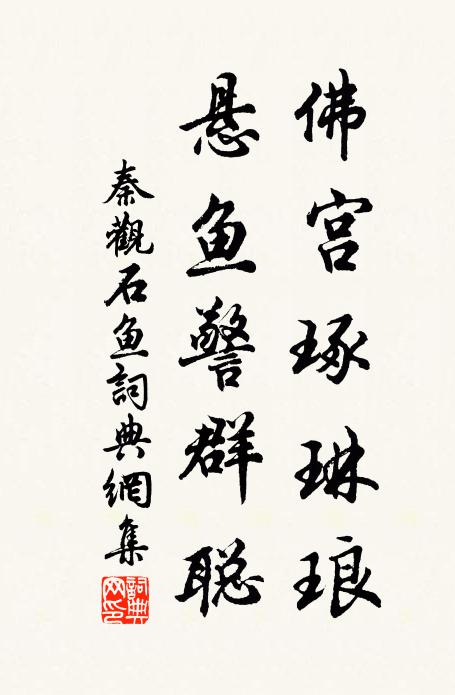 佛宫琢琳琅
悬鱼警群聪
秦觀石鱼詞典網集
詞典网印